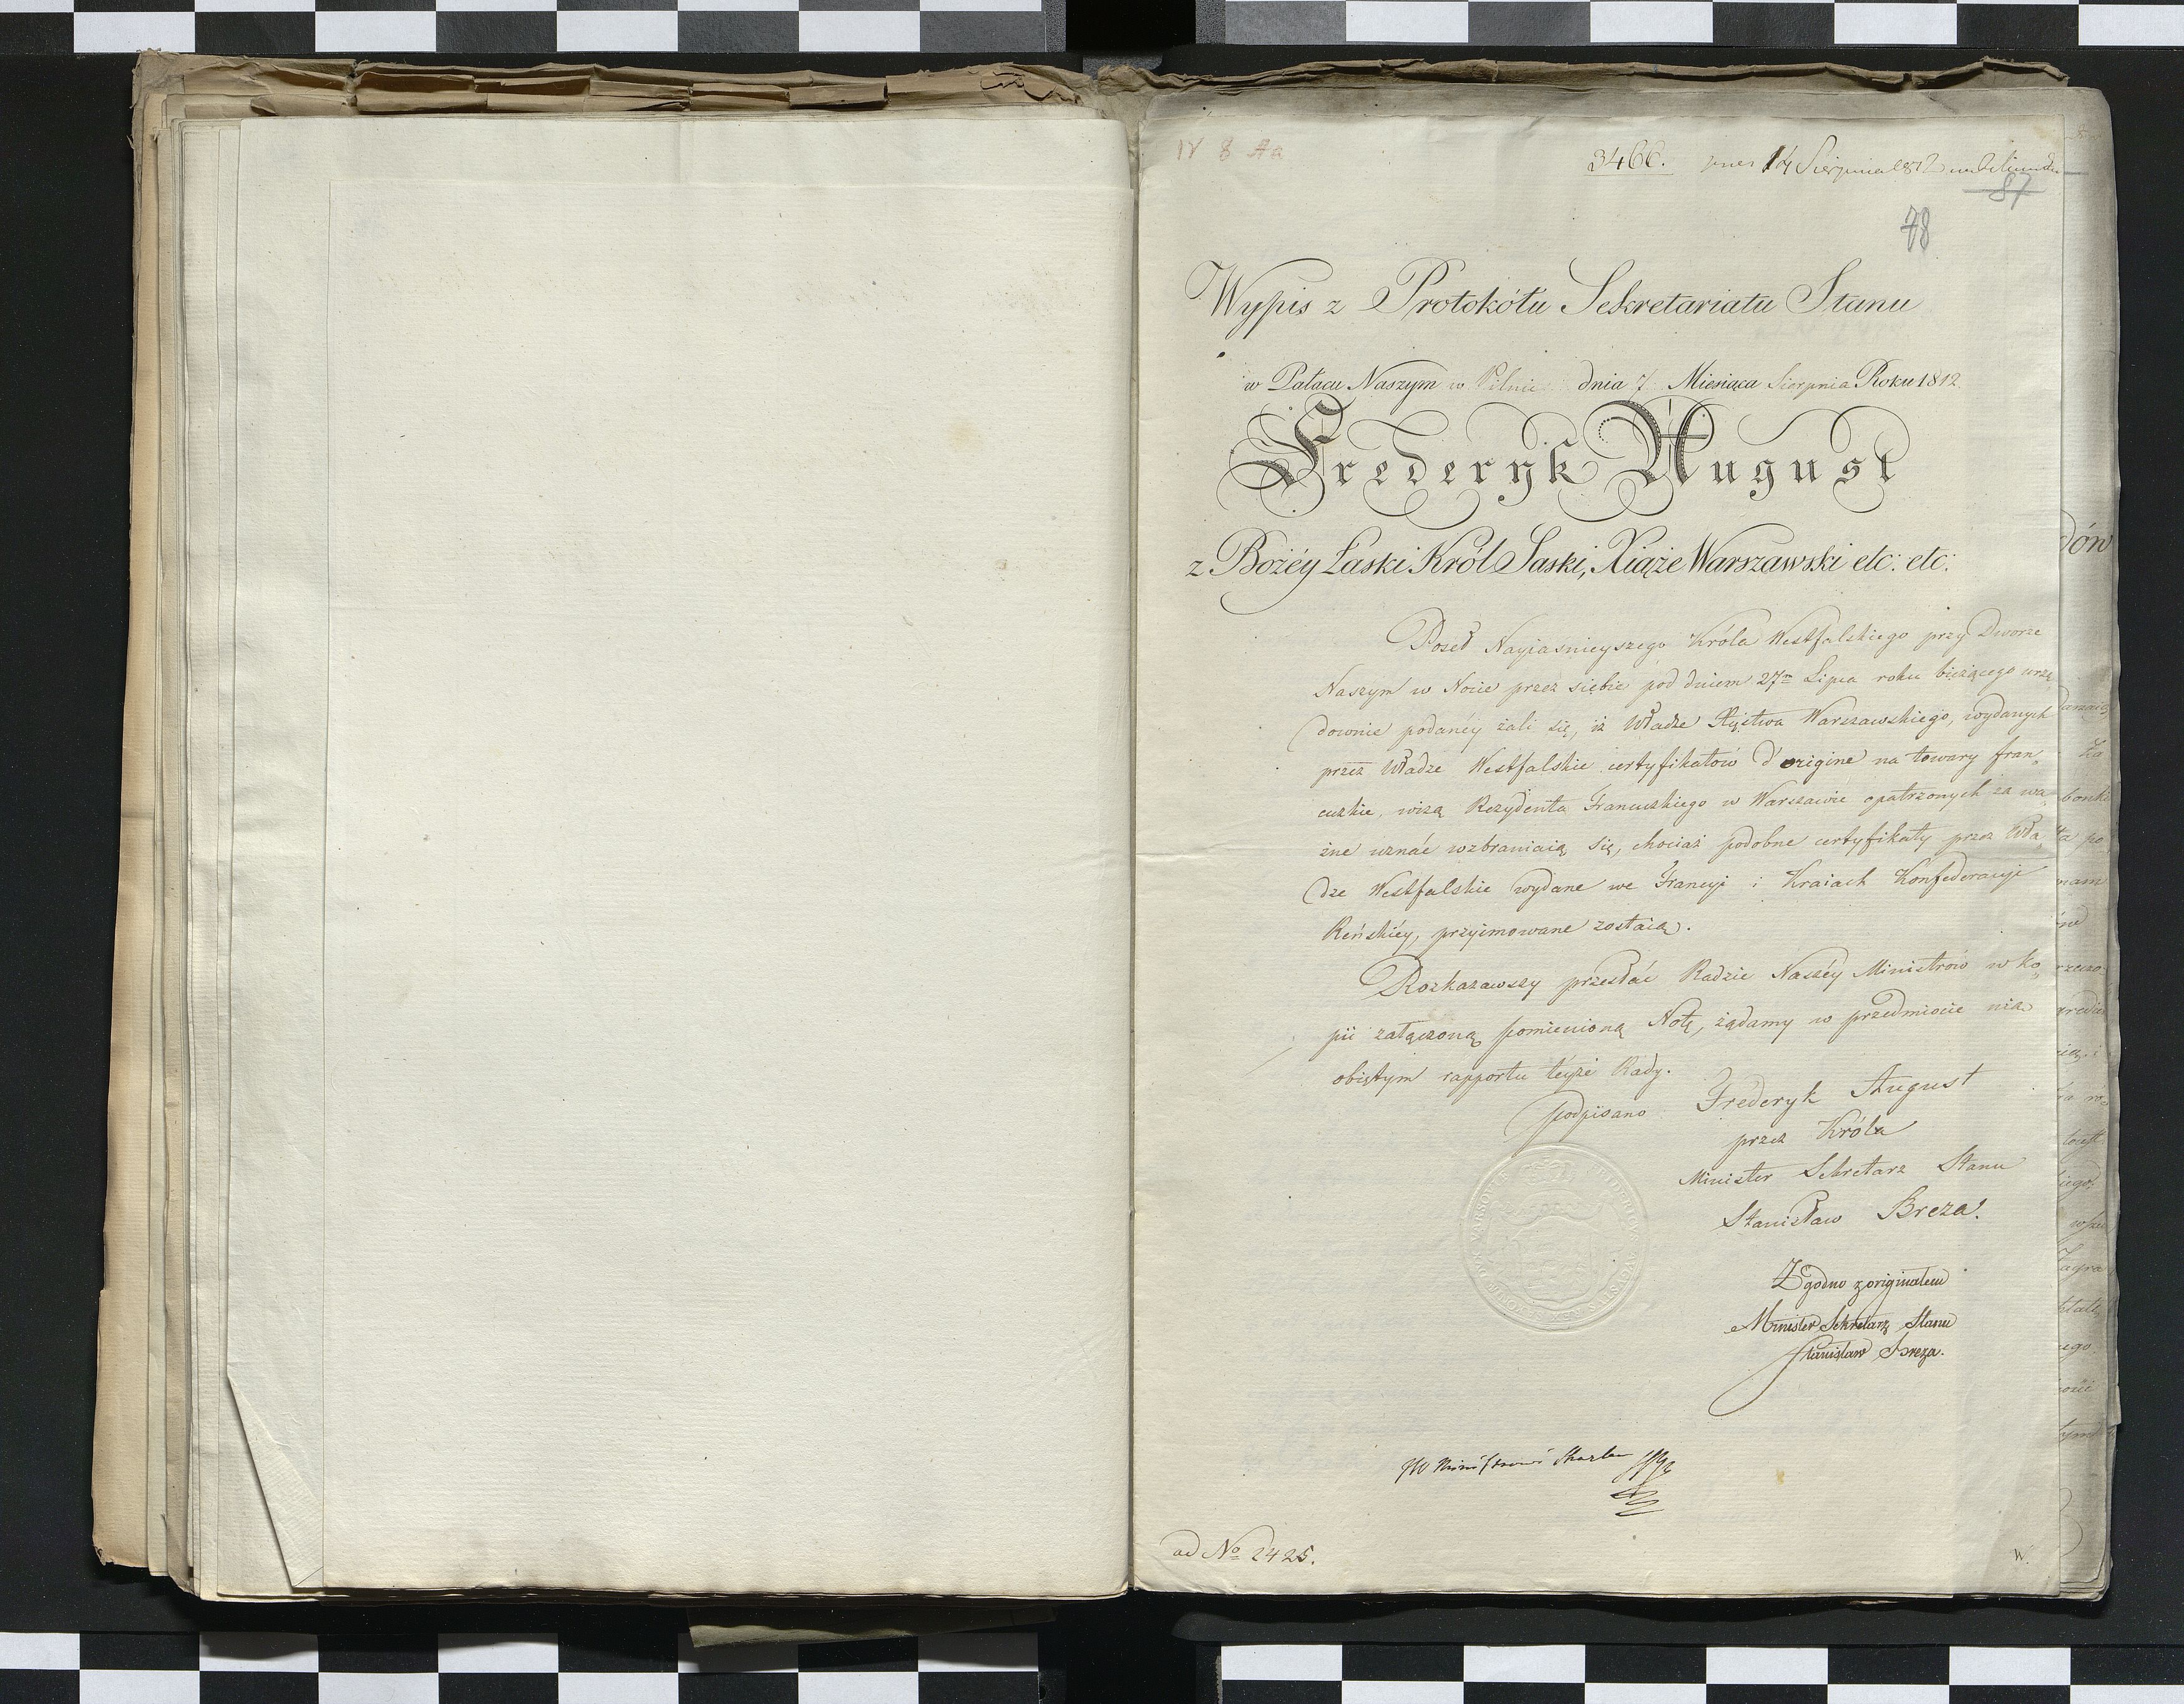 IV 8 Aa
3466. 14 Sierpnia 1812
87
78
Wypis z Protokółu Sekretariatu Stanu
w Pałacu Naszym w Pilnic dnia 7. Miesiąca Sierpnia Roku 1812
Frederyk August
z Bożéy Łaski Król Saski, Xiąże Warszawski etc: etc:
Poseł Nayiasnieyszego Króla Westfalskiego przy Dworze
Naszym w Nocie przez siebie pod dniem 27m Lipca roku bieżącego urzę„
downie podanéy żali się, iż Władze Xięstwa Warszawskiego, wydanych
przez Władze Westfalskie certyfikatow d'origine na towary fran„
cuzkie, wizą Rezydenta Francuzkiego w Warszawie opatrzonych za wa„
żne uznać wzbraniaią się, chociaż podobne certyfikaty przez Wła„
dze Westfalskie wydane we Francyi i Kraiach Konfederacyi
Reńskiéy, przyimowane zostaią.
Rozkazawszy przesłać Radzie Naszéy Ministrów w ko„
pii załączoną pomienioną Notę, żądamy w przedmiocie nią
obiętym rapportu teyże Rady.
podpisano Frederyk August
przez Króla
Minister Sekretarz Stanu
Stanisław Breza.
Zgodno z originałem
Minister Sekretarz Stanu
Stanisław Breza.
JW Ministrowi Skarbu
ad No 2425.
W.